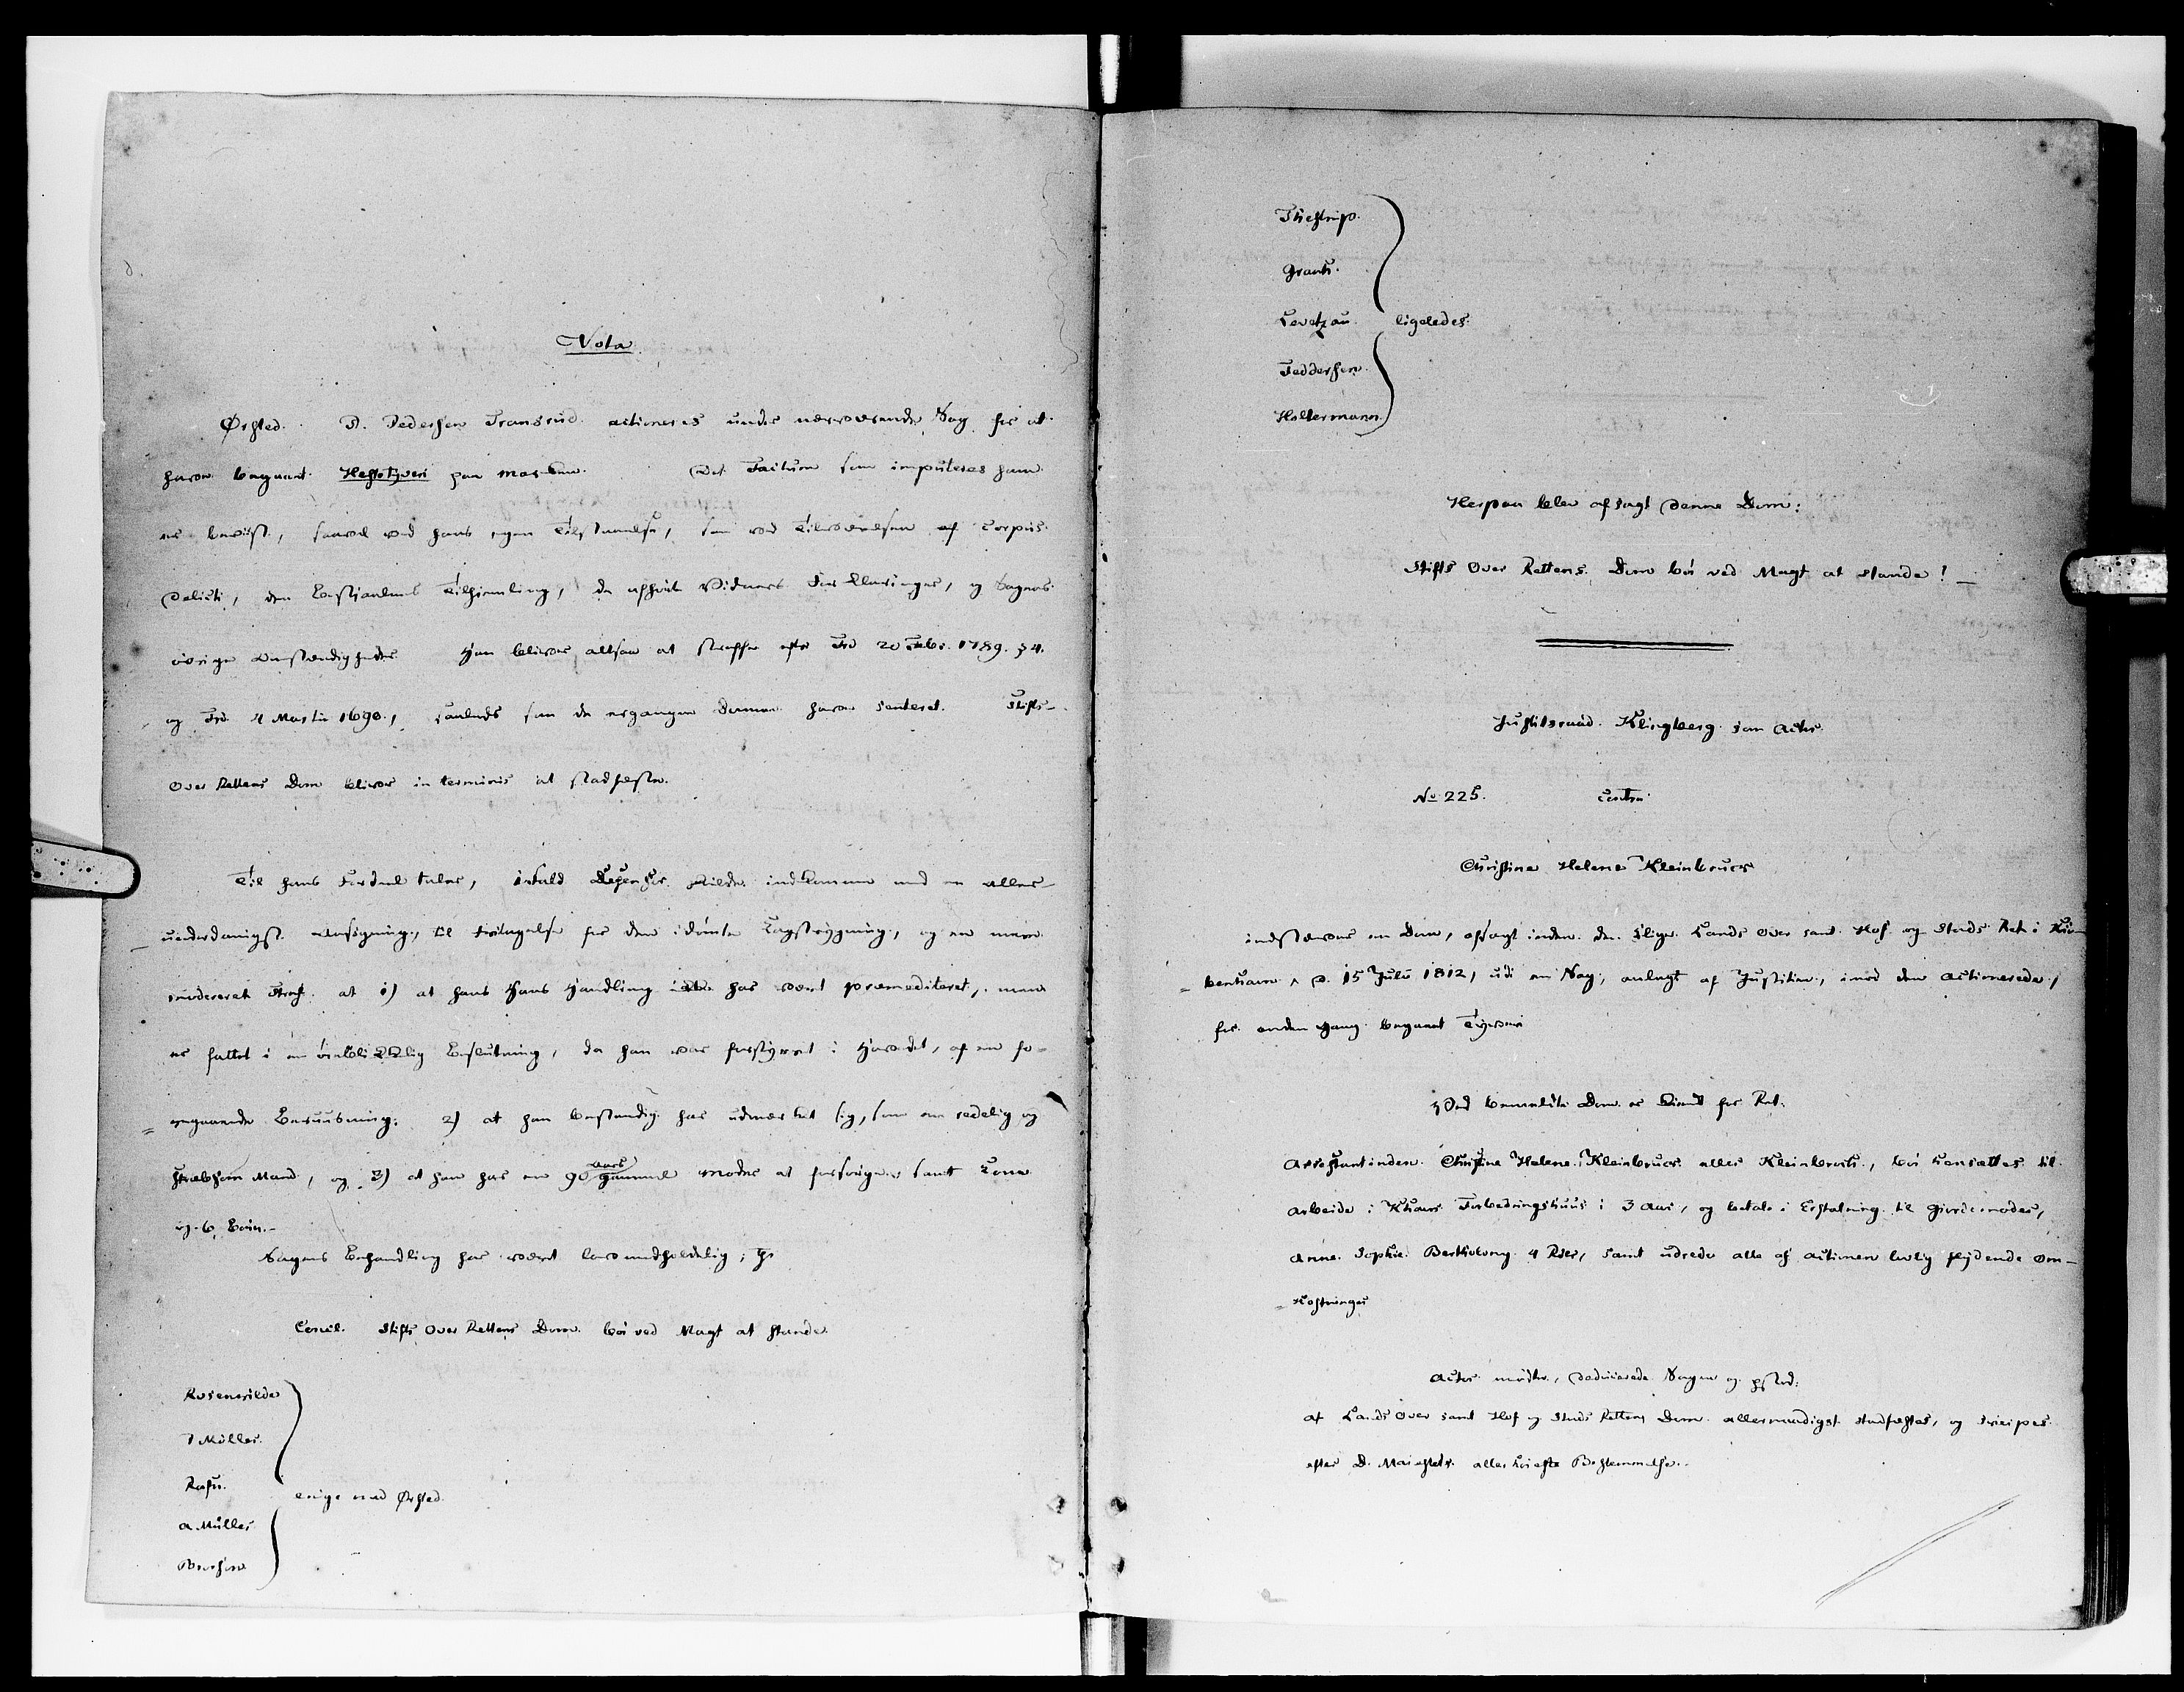 Vota.
Ørsted. P. Pedersen Transrud actioneres under nærværende Sag for at
have begaaet Hestetyveri paa Marken. Det Factum som imputeres ham
er beviist, saavel ved hans egen Tilstaaelse, som ved Tilværelsen af Corpus
delicti, den Bestiaalnes Tilhiemling, de afhørte Vidners Forklaringer, og Sagens
övrige Omstændigheder. Han bliver altsaa at straffe efter Fr. 20 Febr. 1789. § 4.
og Fr. 4 Martii 1690, saaledes som de ergangne Domme have senteret. Stifts-
Over Rettens Dom bliver in terminis at stadfæste.
Til hans Fordeel taler, ifald Defensor vilde indkomme med en aller-
underdanigst Ansögning, til Fritagelse for den idömte Kagstrygning, og en mere
modereret Straf at 1) at hans Handling ikke har været præmediteret, men
er fattet i en öieblikkelig Beslutning, da han var forstyrret i Hovedet, af en fo-
regaaende Beruusning; 2) at han bestandig har udmærket sig, som en redelig og
stræbsom Mand, og 3) at han har en 90 aars gammel Moder at forsörge, samt Kone
og 6 Börn.-
Sagens Behandling har været lovmedholdelig; thi
Concl. Stifts Over Rettens Dom bör ved Magt at stande.
Rosenvilde
P Müller.
Rafn.
enige med Ørsted.
A. Müller
Thestrup.
Levetzau. ligeledes.
Feddersen.
Holtermann.
Herpaa blev afsagt denne Dom:
Stifts Over Rettens Dom bör ved Magt at stande! -
Justitsraad Klingberg som Actor
No 225. Contra
Christine Helene Kleinbruer
indstævner en Dom, afsagt inden den Kglige Lands Over samt Hof og Stads Ret i Kiö-
benhavn, d. 15 Julii 1812, udi en Sag, anlagt af Justitien, imod den Actionerede,
for anden Gang begaaet Tyveri
Ved bemeldte Dom er kiendt for Ret:
Arrestantinden Christine Helene Kleinbruer eller Kleinbroth, bör hensættes til
Arbeide i Khavns Forbedringshuus i 3 Aar, og betale i Erstatning til Giordemoder,
Anne Sophie 4 Rdlr, samt udrede alle af Actionen lovlig flydende Om-
kostninger
Actor mödte, deducerede Sagen og paastod:
at Lands Over samt Hof og Stads Rettens Dom allernaadigst stadfæstes, og
efter D. Maiestets allerhöieste Bestemmelse.